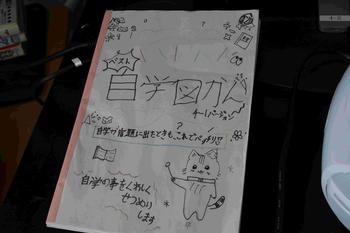 ベスト
自学図かん
4-1バージョン
自学が宿題に出たときも、これでバッチリ!?
自学の事をくわしく
せつめい
します